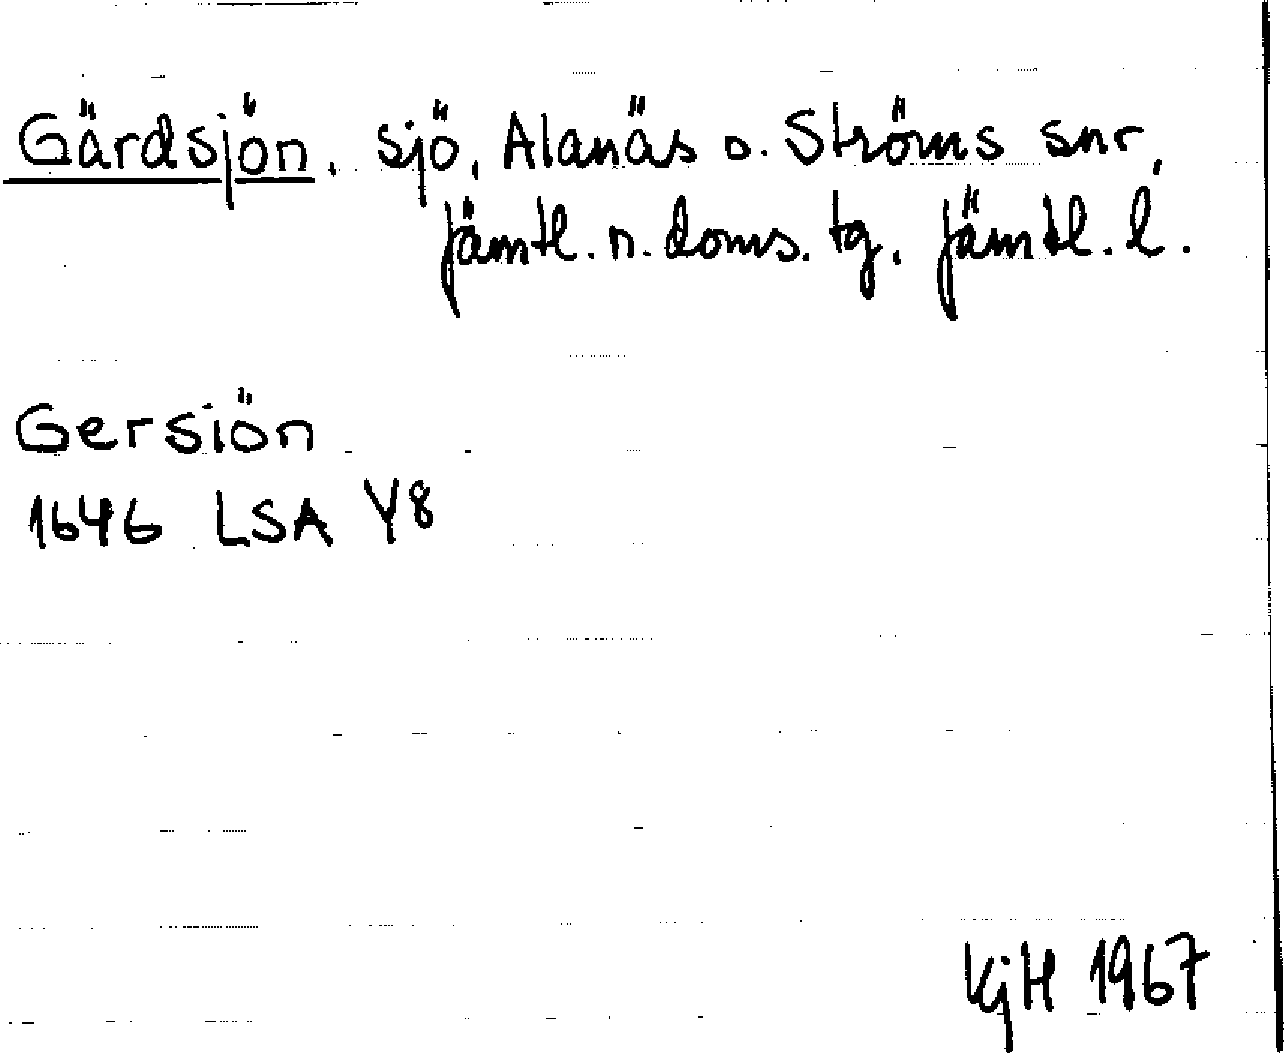 Gärdsjön, sjö, Alanäs o. Ströms snr,
Jämtl. n. doms. tg, Jämtl. l.
Gersiön
1646 LSA Y8
KjH 1967